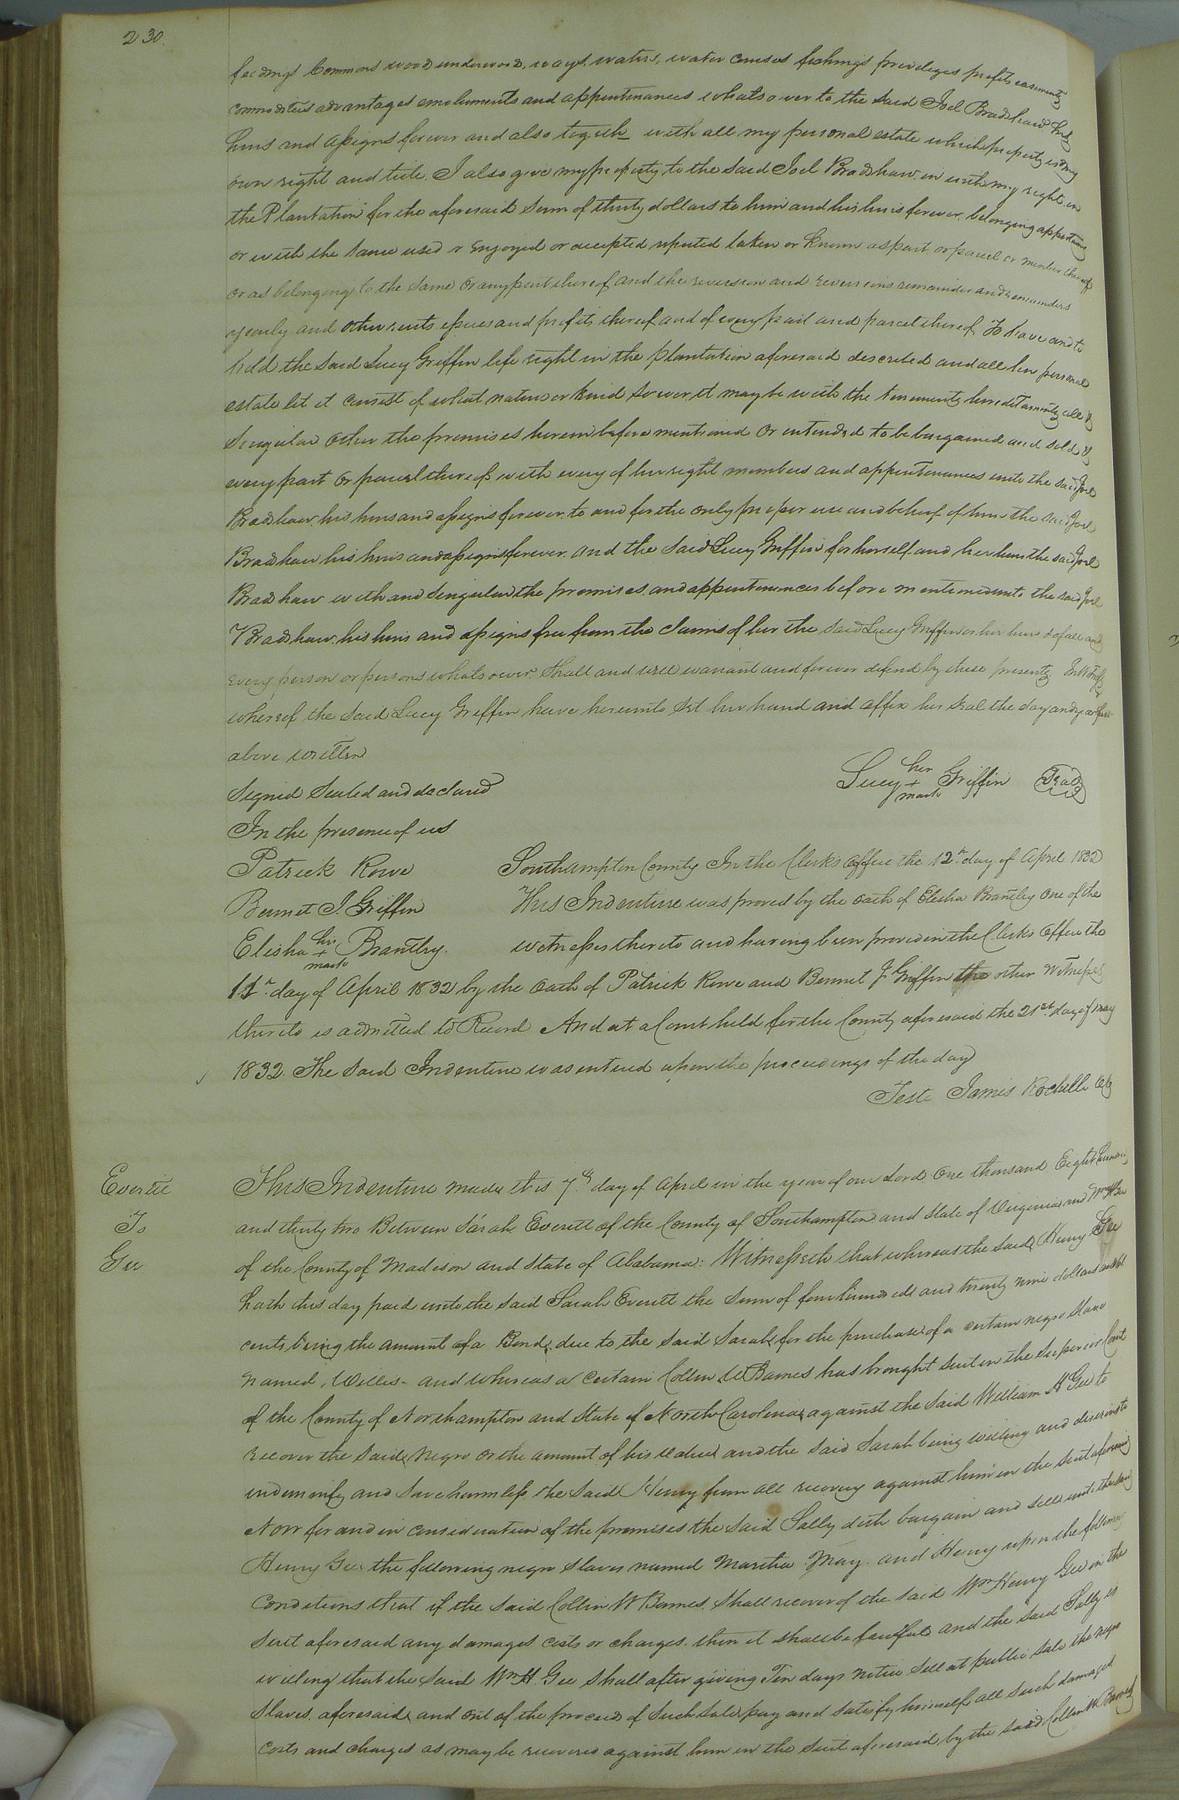 230.
feedings Commons wood underwood, ways, waters, water courses fishings priviledges profits easements
commodities advantages emoluments and appurtenances whatsoever to the said Joel Bradshaw his
heirs and assigns forever and also together with all my personal estate which property is my
own right and title. I also give my property to the said Joel Bradshaw in with my right in
the Plantation for the aforesaid Sum of thirty dollars to him and his heirs forever belonging appertaining
or with the same used or enjoyed or accepted reputed taken or known as part or parcel or member thereof
or as belonging to the same or any part thereof and the reversion and reversions remainder and remainders
yearly and other rents issues and profits thereof and of every part and parcel thereof To have and to
hold the said Lucy Griffin life right in the plantation aforesaid described and all her personal
estate let it consist of what nature or kind soever it may be with the tenements hereditaments all &
Singular other the premises herein before mentioned or intended to be bargained and sold &
every part or parcel thereof with every of her right members and appurtenances unto the said Joel
Bradshaw his heirs and assigns forever to and for the only proper use and behoof of him the said Joel
Bradshaw his heirs and assigns forever. and the said Lucy Griffin for herself and her heirs the said Joel
Bradshaw with and singular the premises and appurtenances before mentioned unto the said Joel
Bradshaw, his heirs and assigns free from the claims of her the said Lucy Griffin or her heirs & of all and
every person or persons whatsoever Shall and will warrant and forever defend by these presents In Witness
whereof the said Lucy Griffin have hereunto Set her hand and affix her seal the day and year first
above written
Signed Sealed and declared
Lucy her + mark Griffin Seal
In the presence of us
Patrick Rowe
Bennet J. Griffin
Elisha his + mark Brantley.
Southampton County In the Clerks office the 12th day of April 1832
This Indenture was proved by the oath of Elisha Brantley one of the
witnesses thereto and having been proved in the Clerks office the
11th day of April 1832 by the oath of Patrick Rowe and Bennet J Griffin the other Witnesses
thereto is admitted to Record And at a Court held for the County aforesaid the 21st day of May
1832. The said Indenture was entered upon the proceedings of the day
Teste James Rochelle Clk
Everitt
To
Gee
This Indenture made this 7th day of April in the year of our Lord one thousand Eight hundred
and thirty two Between Sarah Everitt of the County of Southampton and State of Virginia and Wm H Gee
of the County of Madison and State of Alabama: Witnesseth that whereas the said Henry Gee
hath this day paid unto the said Sarah Everitt the Sum of four hundred and twenty nine dollars and
cents being the amount of a Bond due to the said Sarah for the purchase of a certain negro slave
named Willis- and whereas a certain Collin W Barnes has brought suit in the Superior Court
of the County of Northampton and State of North Carolina against the said William H Gee to
recover the said Negro or the amount of his value and the said Sarah being willing and desirous to
indemnify and Save harmless the said Henry from all recovery against him in the suit aforesaid
Now for and in consideration of the premises the said Sally doth bargain and sell unto the said
Henry Gee the following negro slaves named Martha May and Henry upon the following
Conditions that if the said Collin W Barnes, Shall recover of the said Wm Henry Gee in the
Suit aforesaid any damages costs or charges. then it shall be lawful and the said Sally is
willing that the said Wm H Gee shall after giving Ten days notice Sell at public sale the negro
slaves aforesaid and out of the proceeds of such sale pay and satisfy himself all such damages
Costs and charges as may be recovered against him in the Suit aforesaid by the said Collin W Barnes